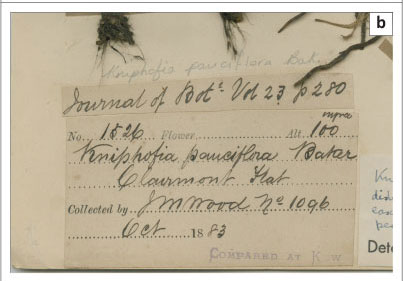 b
Kniphofia pauciflora Bak.
Journal of Bot^s. Vol 23 p 280
No. 1526 Flower Alt 100
Kniphofia pauciflora Baker
Clairmont Flat
Collected by J M Wood No 1096
Oct 1883
COMPARED AT KEW
Dete